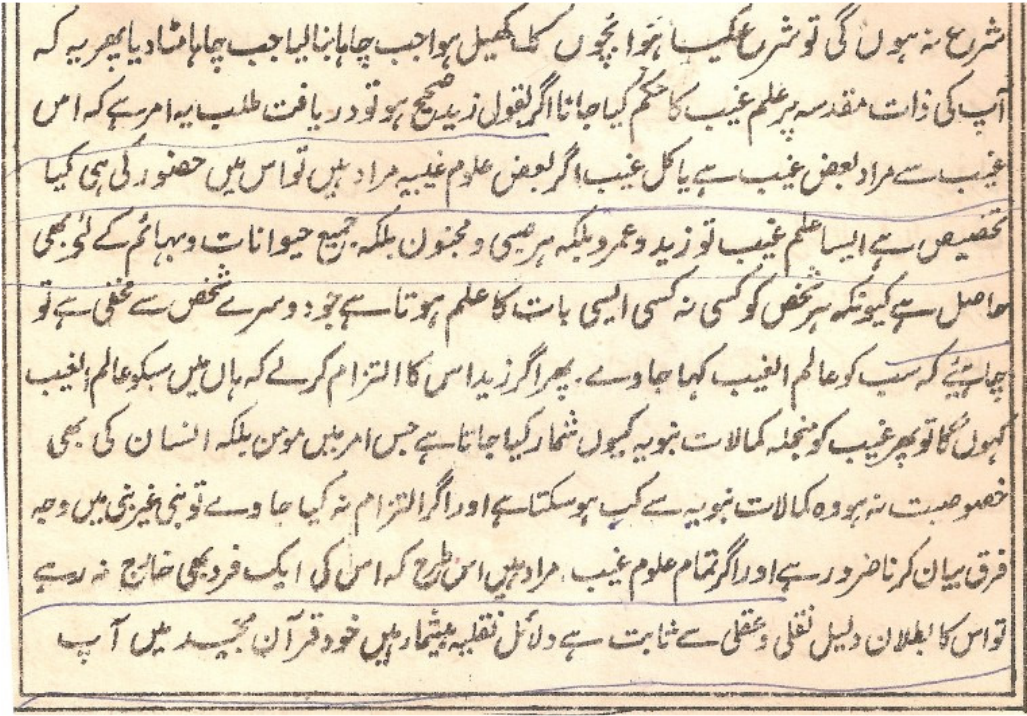 شرع نہ ہوں گی تو شرع کیا ہوا بچوں کا کھیل ہوا جب چاہا بنالیا جب چاہا مٹادیا پھر یہ کہ
آپ کی ذات مقدسہ پر علم غیب کا حکم کیا جانا اگر بقول زید صحیح ہو تو دریافت طلب یہ امر ہے کہ اس
غیب سے مراد بعض غیب ہے یا کل غیب اگر بعض علوم غیبیہ مراد ہیں تو اس میں حضور کی ہی کیا
تخصیص ہے ایسا علم غیب تو زید و عمرو بلکہ ہر صبی و مجنون بلکہ جمیع حیوانات و بہائم کے لئے بھی
حاصل ہے کیونکہ ہر شخص کو کسی نہ کسی ایسی بات کا علم ہوتا ہے جو دوسرے شخص سے مخفی ہے تو
چاہئیے کہ سب کو عالم الغیب کہا جاوے۔ پھر اگر زید اس کا التزام کرلے کہ ہاں میں سبکو عالم الغیب
کہوں گا تو پھر غیب کو منجملہ کمالات نبویہ کیوں شمار کیا جاتا ہے جس امر میں مومن بلکہ انسان کی بھی
خصوصیت نہ ہو وہ کمالات نبویہ سے کب ہوسکتا ہے اور اگر التزام نہ کیا جاوے تو نبی غیر نبی میں وجہ
فرق بیان کرنا ضرور ہے اور اگر تمام علوم غیب مراد ہیں اس طرح کہ اس کی ایک فرد بھی خارج نہ رہے
تو اس کا بطلان دلیل نقلی و عقلی سے ثابت ہے دلائل نقلیہ بیشمار ہیں خود قرآن مجید میں آپ